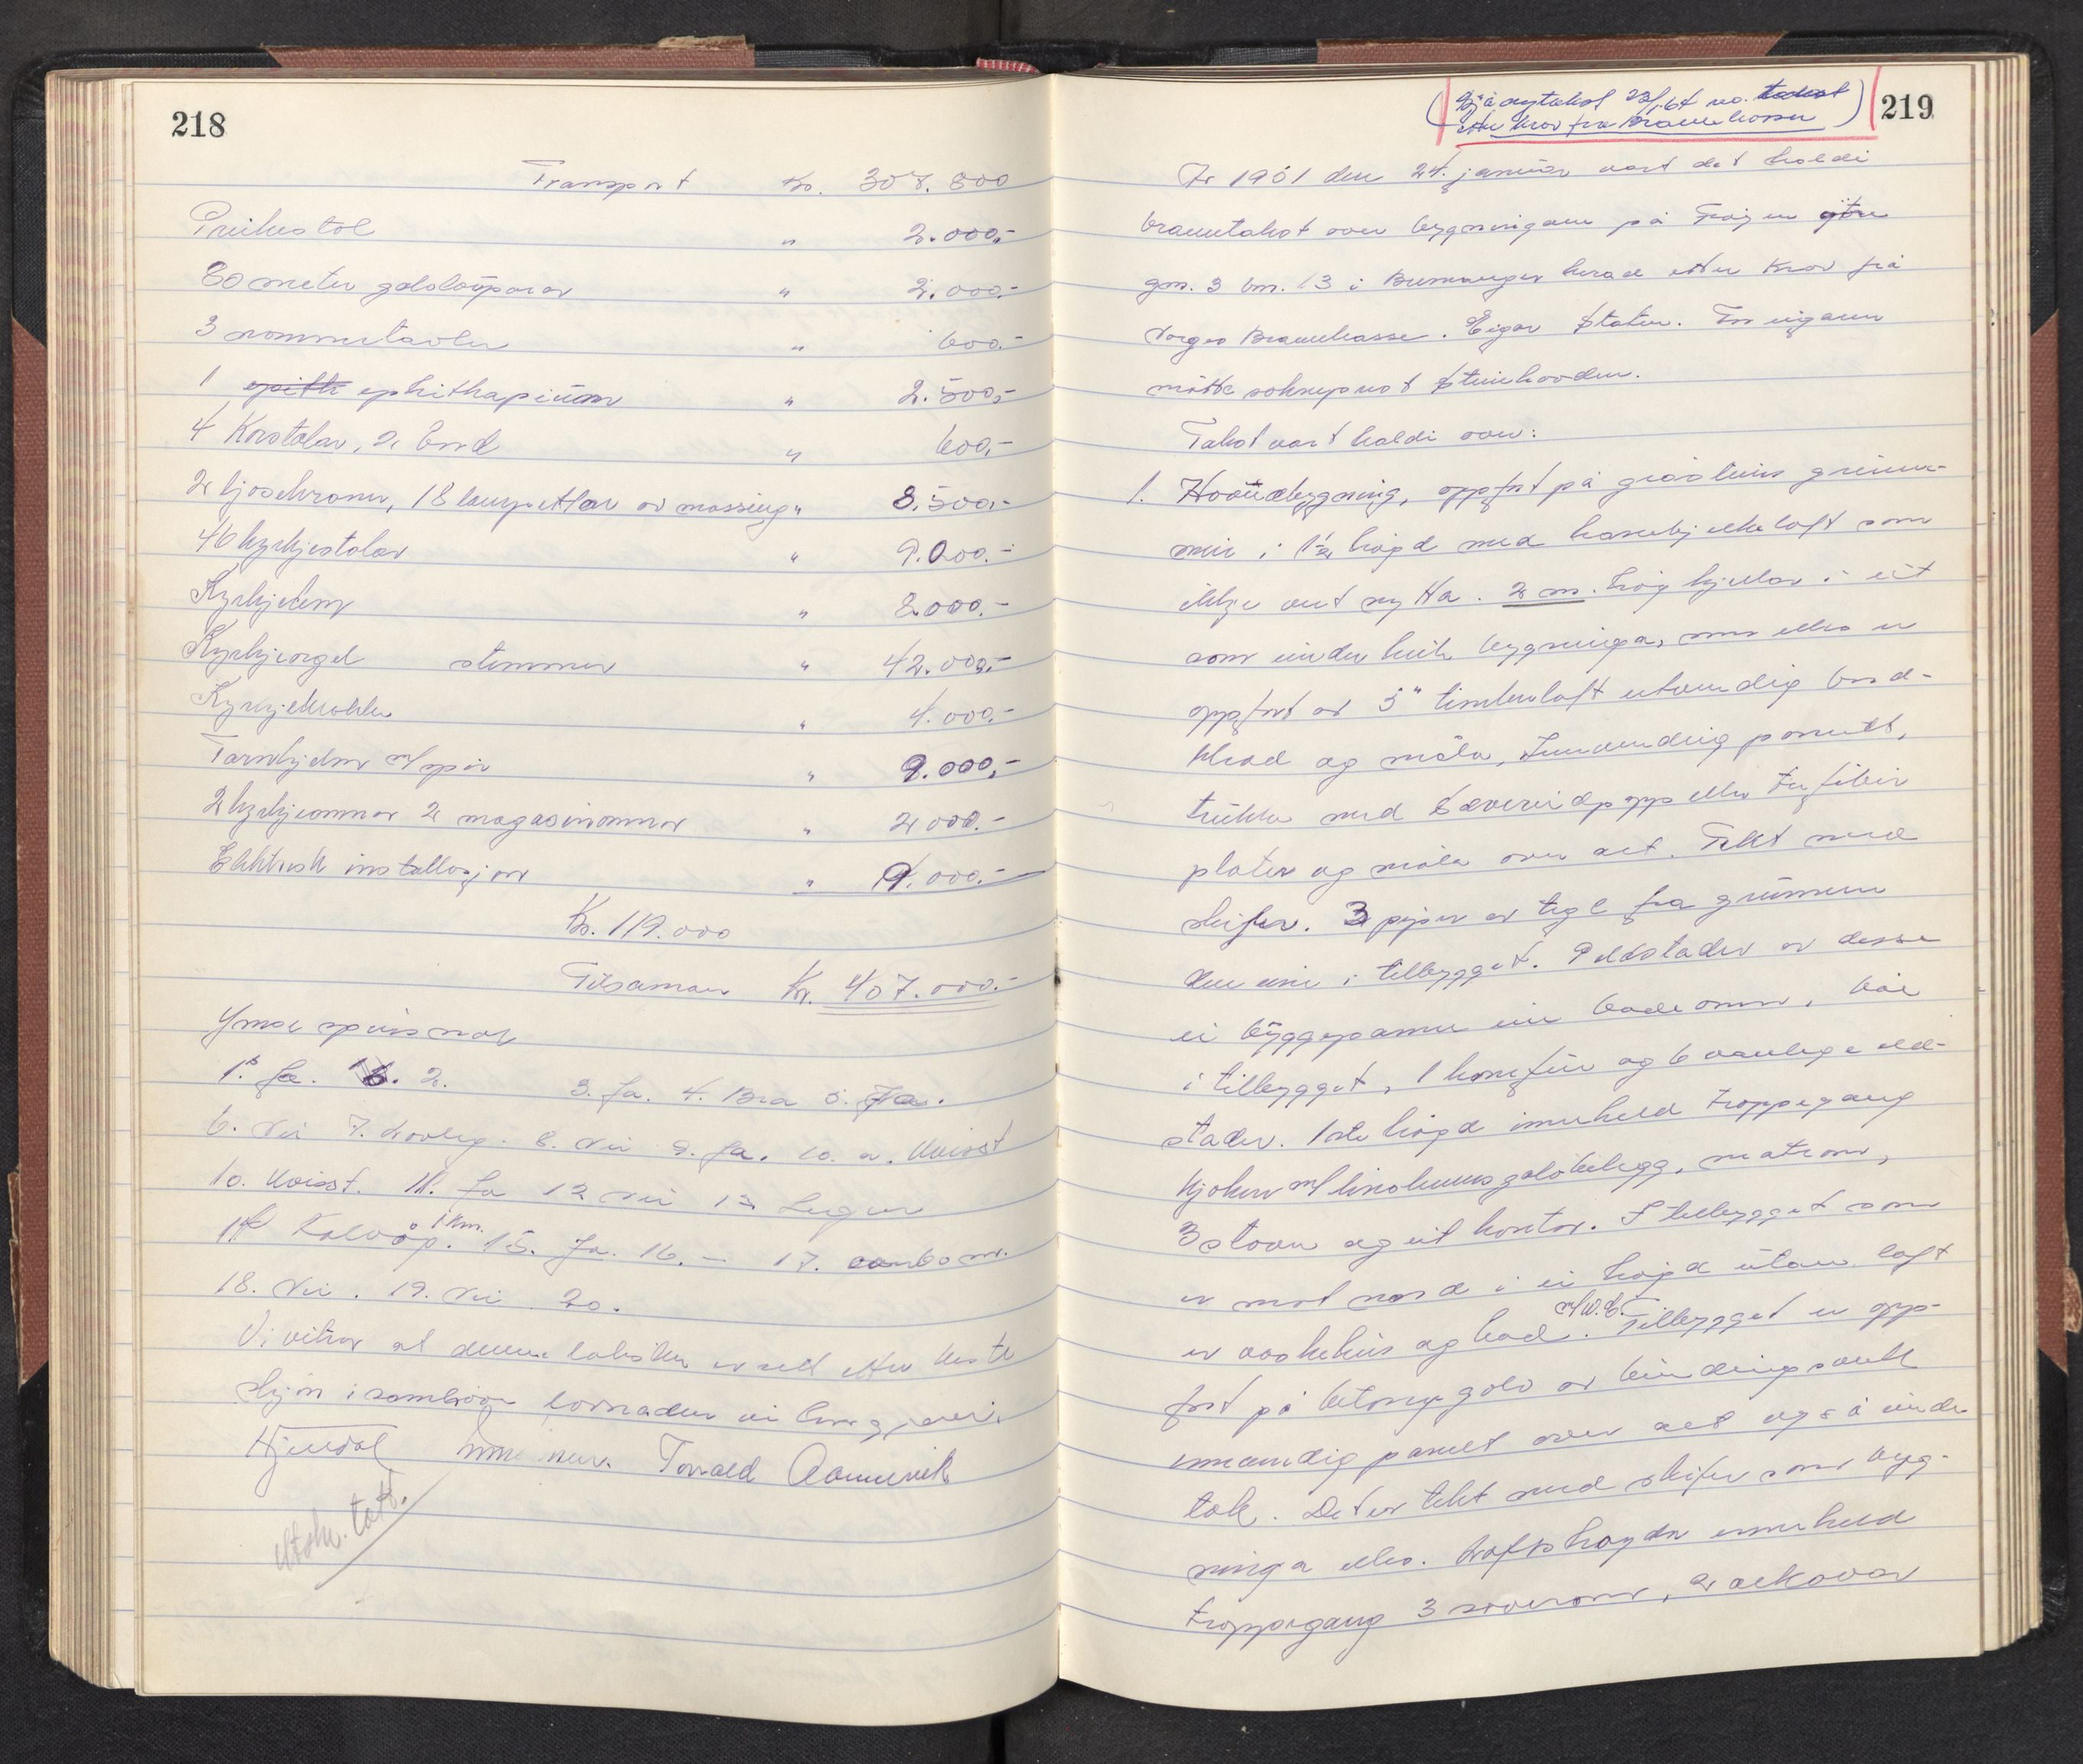 218
Transport Kr. 307.800
Preikestol " 2.000,-
80 meter golvløparar " 2.000.-
3 nommertavler " 600.-
1 ephithapium " 2.500,-
4 Korstolar, 2 bord " 600,-
2 ljosekroner, 18 lampettar av messing " 8.500.-
46 kyrkjestolar " 9.000.-
Kyrkjetem " 8.000.-
Kyrkjeorgel stemmer " 42.000,-
Kyrkjeklokke " 4.000.-
Tarnhjelm m/spir " 9.000,-
2 kyrkjeomnar 2 magasinomnar " 2000.-
Elektrisk installasjon " 9.000.-
Kr. 119.000
Tilsaman Kr. 407.000.-
Ymse spursmål
1. Ja. 2. 3. Ja. 4. Bra 5. Ja.
6. Nei 7. Lovleg. 8. Nei 9. Ja. 10. a. Uvisst
10. Uvisst. 11. Ja 12 Nei 13 Ingen
14 Kalvåg. 1 km. 15. Ja. 16. — 17. 60 m.
18. Nei. 19. Nei 20.
Vi vitnar at denne taksten er sett etter beste
skjøn i samhøve lovnaden vi har gjeve.
Hjertdal Torvald Aamervik
Utskr. tatt.
(Sjå nytakst 23/1.64
etter krav fra Brannkassen) 219
År 1961 den 24. januar vart det haldi
branntakst over bygningane på Frøyen ytre
gnr. 3 bnr. 13 i Bremanger herad etter krav frå
Norges Brannkasse. Eigar Staten. For eigaren
møtte sokneprest Steinhovden.
Takst vart haldi over:
1. Hovudbygning, oppført på gråsteins grunn-
mur i 1½ høgd med hanebjelkeloft som
ikkje vert nytta. 2 m. høg kjellar i eit
som under heile bygninga, som elles er
oppført av 5" timberloft utvendig bord-
kled og måla, Innvendig panelt,
trekke med Sævereidpapp eller trefiber
plater og måla over alt. Tekt med
skifer. 3 piper av tegl fra grunnen
den eine i tilbygget. Eldstader av desse
ei bryggepanne ein badeomn, båe
i tilbygget, 1 komfur og 6 vanlege eld-
stader. 1ste høgd inneheld troppegang
kjøken m/linoleums golvbelegg, matrom,
3 stover og eit kontor. I tilbygget som
er mot nord i ei høgd utan loft
er vaskehus og bad m/W.C. Tilbygget er opp-
ført på betong golv av bindingsverk
innvendig panelt over alt også under
tak. Det er tekt med skifer som byg-
ninga elles. Loftshøgda inneheld
troppegang 3 soverom, 2 alkovar